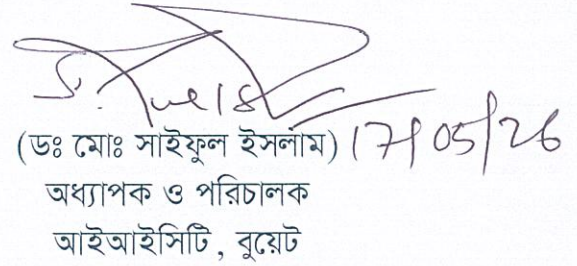 (ডঃ মোঃ সাইফুল ইসলাম) 17/05/26
অধ্যাপক ও পরিচালক
আইআইসিটি, বুয়েট